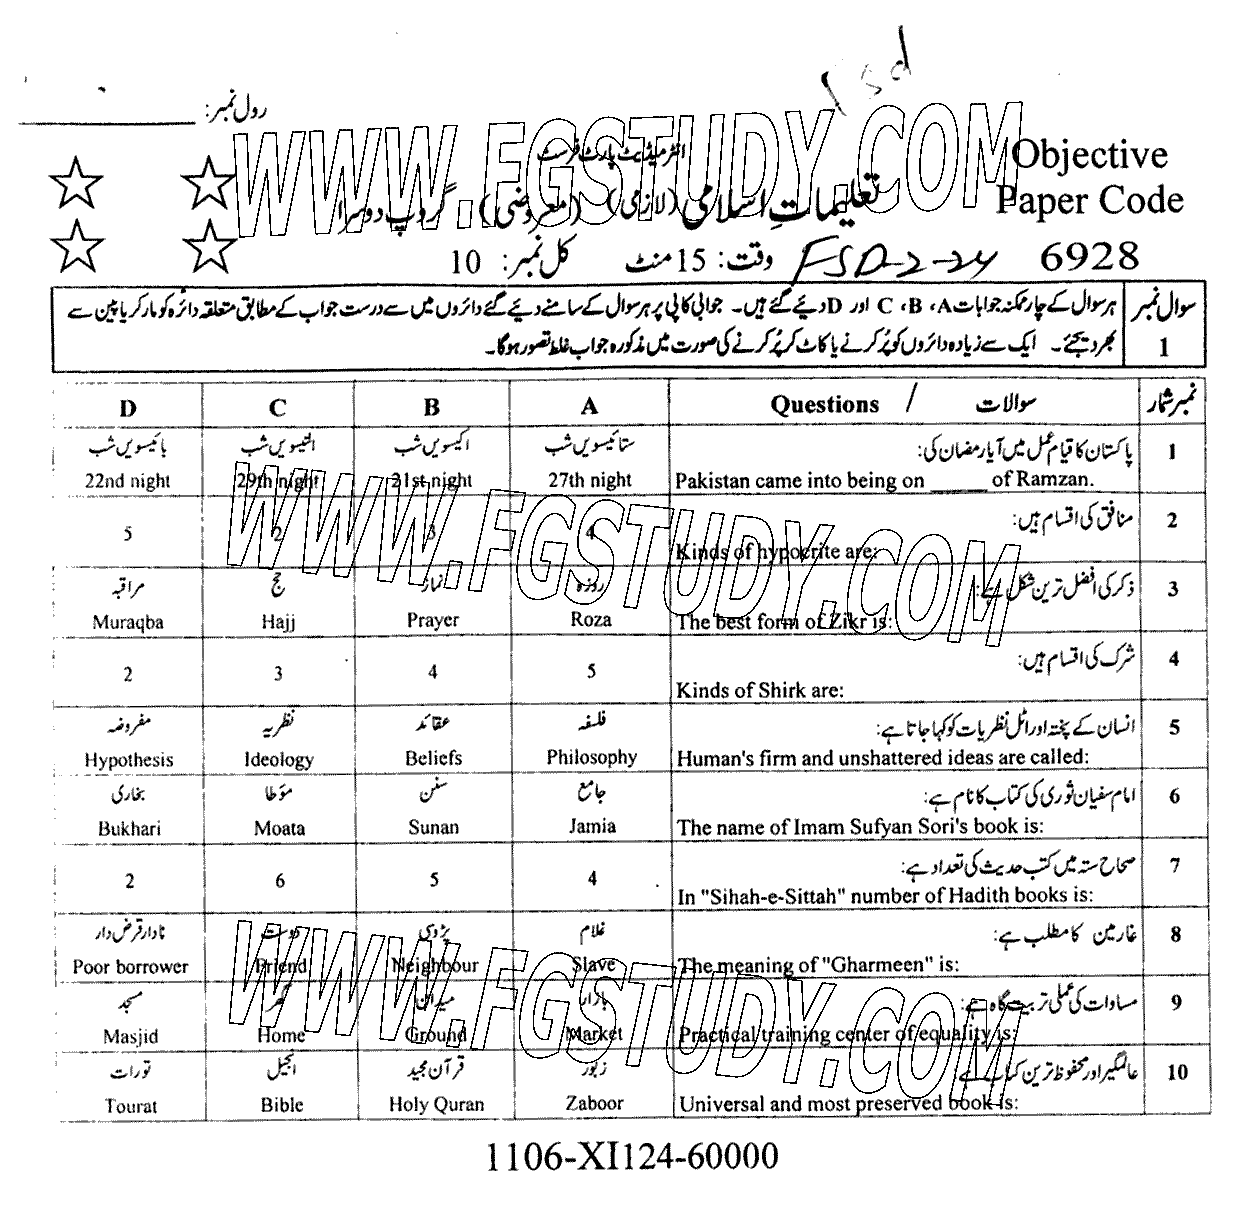 رول نمبر:
انٹرمیڈیٹ پارٹ فرسٹ
Objective
تعلیماتِ اسلامی (لازمی) (معروضی) گروپ دوسرا
Paper Code
وقت: 15 منٹ کل نمبر: 10
FSD-2-24
6928
سوال نمبر 1
ہر سوال کے چار ممکنہ جوابات A، B، C اور D دیئے گئے ہیں۔ جوابی کاپی پر ہر سوال کے سامنے دیئے گئے دائروں میں سے درست جواب کے مطابق متعلقہ دائرہ کو مارکر یا پین سے
بھر دیجئے۔ ایک سے زیادہ دائروں کو پُر کرنے یا کاٹ کر پُر کرنے کی صورت میں مذکورہ جواب غلط تصور ہوگا۔
D C B A Questions / سوالات نمبر شمار
بائیسویں شب انتیسویں شب اکیسویں شب ستائیسویں شب پاکستان کا قیام عمل میں آیا رمضان کی: 1
22nd night 29th night 21st night 27th night Pakistan came into being on ______ of Ramzan.
منافق کی اقسام ہیں: 2
5 2 3 4 Kinds of hypocrite are:
مراقبہ حج نماز روزہ ذکر کی افضل ترین شکل ہے: 3
Muraqba Hajj Prayer Roza The best form of Zikr is:
شرک کی اقسام ہیں: 4
2 3 4 5 Kinds of Shirk are:
مفروضہ نظریہ عقائد فلسفہ انسان کے پختہ اور اٹل نظریات کو کہا جاتا ہے: 5
Hypothesis Ideology Beliefs Philosophy Human's firm and unshattered ideas are called:
بخاری مؤطا سنن جامع امام سفیان ثوری کی کتاب کا نام ہے: 6
Bukhari Moata Sunan Jamia The name of Imam Sufyan Sori's book is:
صحاح ستہ میں کتب حدیث کی تعداد ہے: 7
2 6 5 4 In "Sihah-e-Sittah" number of Hadith books is:
نادار قرض دار دوست پڑوسی غلام غارمین کا مطلب ہے: 8
Poor borrower Friend Neighbour Slave The meaning of "Gharmeen" is:
مسجد گھر میدان بازار مساوات کی عملی تربیت گاہ ہے: 9
Masjid Home Ground Market Practical training center of equality is:
تورات انجیل قرآن مجید زبور عالمگیر اور محفوظ ترین کتاب ہے: 10
Tourat Bible Holy Quran Zaboor Universal and most preserved book is:
1106-XI124-60000
WWW.FGSTUDY.COM
WWW.FGSTUDY.COM
WWW.FGSTUDY.COM